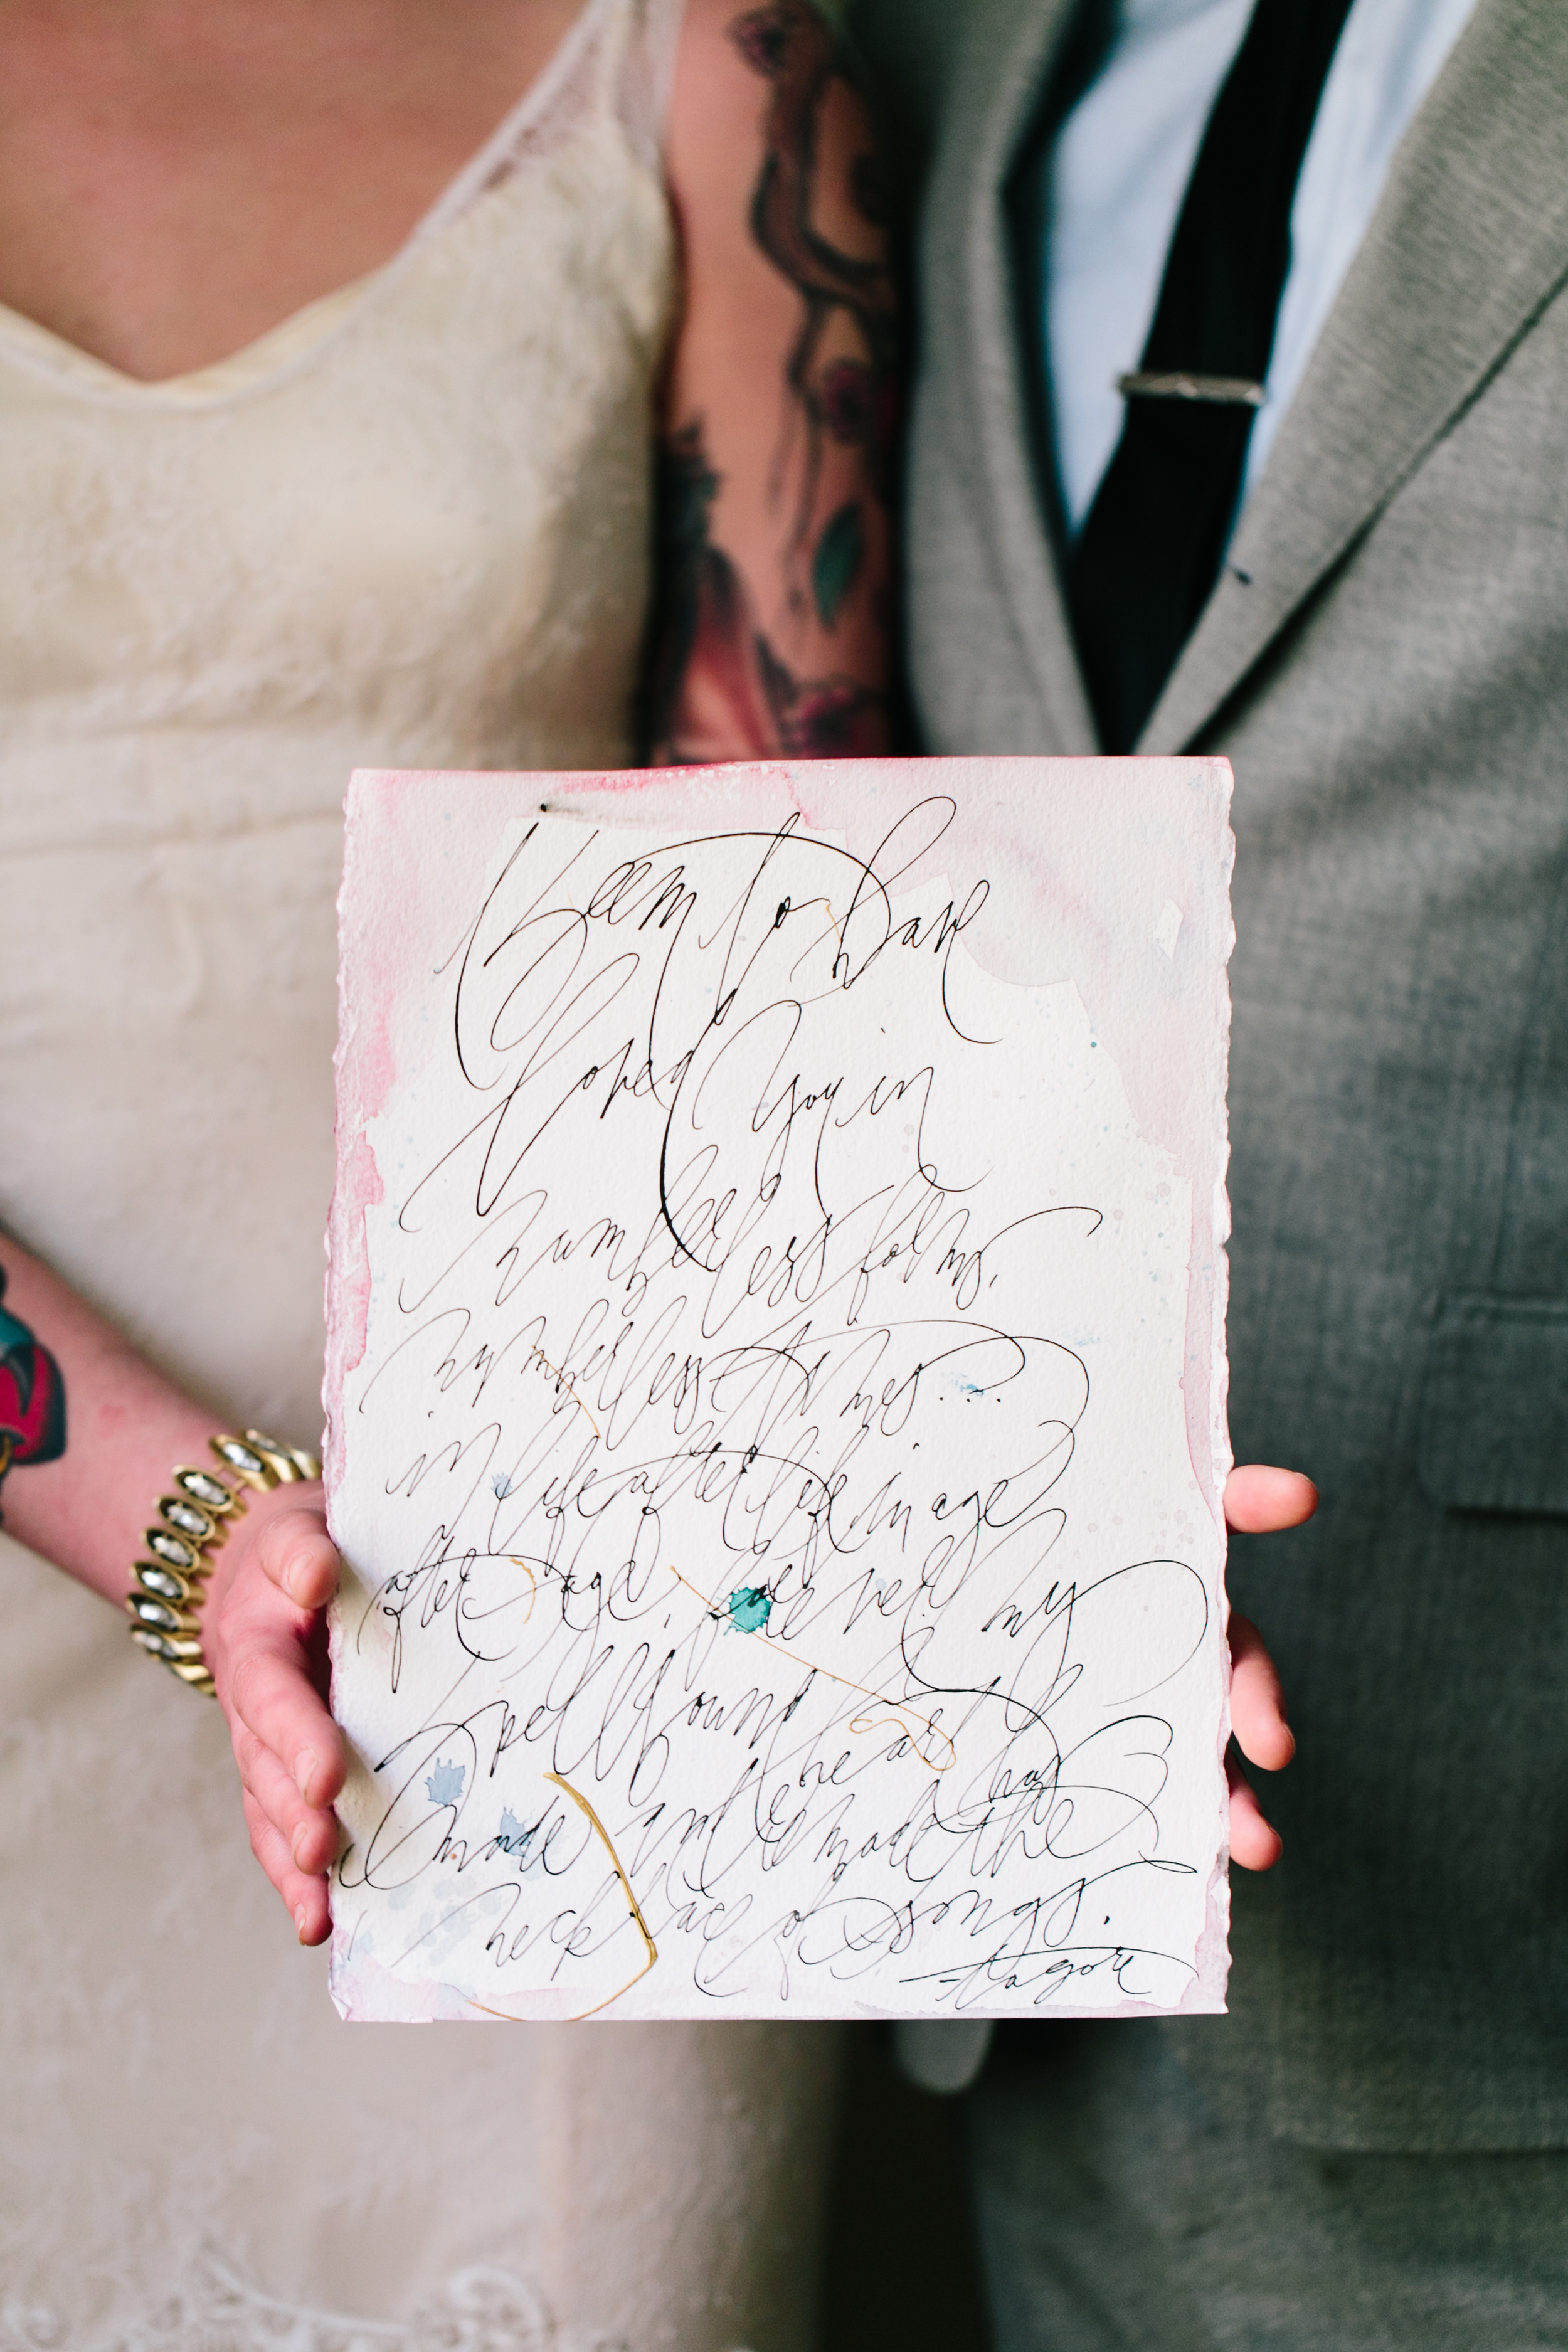 I seem to have
loved you in
numberless forms,
numberless times...
in life after life, in age
after age, forever. My
spellbound heart has
made and remade the
necklace of songs.
-tagore